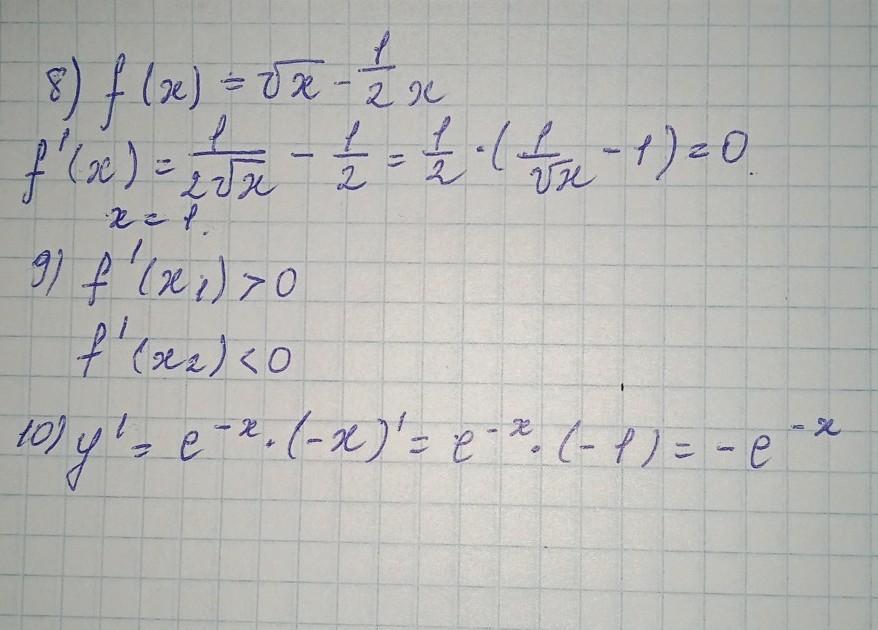 8) f(x) = √x - 1/2 x
f'(x) = 1/(2√x) - 1/2 = 1/2 · (1/√x - 1) = 0.
x = 1.
9) f'(x₁) > 0
f'(x₂) < 0
10) y' = e^(-x) · (-x)' = e^(-x) · (-1) = -e^(-x)